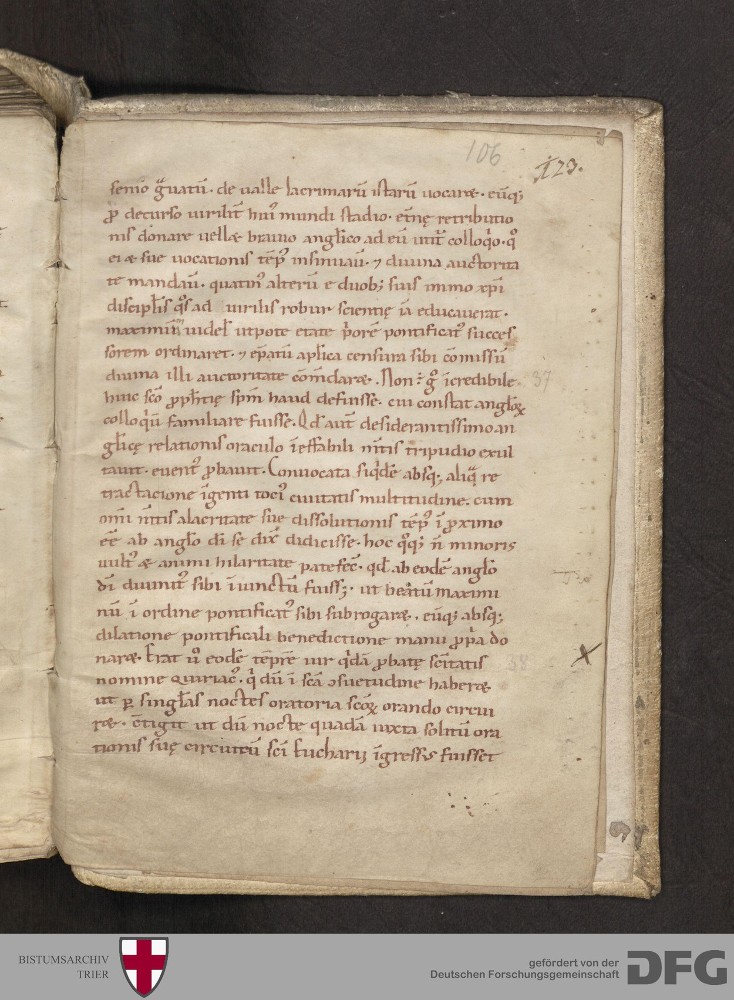 106
123.
senio g̃uatū. de ualle lacrimarū istarū uocaræ. eūq;
p̄ decurso uirilit̄ hui᷒ mundi stadio. et̄nę retributio
nis donare uellæ brauio anglico ad eū utit̄ colloq̇o. q̊
ei æ sue uocationis tēp᷒ insinuau̅. ⁊ diuina auctorita
te mandau̅. quatin᷒ alterū e duob; suis immo xp̄i
discipl̄is q̊s ad uirilis robur scientię iā educauerat.
maximinū uidel̄ utpote etate p̄orē pontificat᷒ succes
sorem ordinaret. ⁊ ep̄atū aplica censura sibi cōmissū
diuina illi auctoritate cōm̄daræ. Non ÷ g̊ īcredibile
huic sc̄o p̱ph̄tię sp̄m haud defuisse. cui constat angl̄oꝝ
colloq̇ū familiare fuisse. Qd̄ aut̄ desiderantissimo an
gl̄icę relationis oraculo īeffabili m̄tis tripudio exul
tauit. euent᷒ p̱bauit. Conuocata siq̇dē absq; aliq̃ re
tractacione īgenti toci᷒ ciuitatis multitudine. cum
om̄i m̄tis alacritate sue dissolutionis tēp᷒ ī p̱ximo
eē ab angl̄o dī se dix̄ didicisse. hoc q̊q; n̄ minoris
uult᷒ æ animi hilaritate patefec̄. qd̄ ab eodē angl̄o
dī diuinit᷒ sibi īiunctū fuiss;. ut beatū maximi
nū ī ordine pontificat᷒ sibi subrogaræ. eūq; absq;
dilatione pontificali benedictione manu p̱p̃a do
naræ. Erat u̅ eodē tēp̄re uir q̇dā p̱batę sc̄itatis
nomine quiriac᷒. q̇ dū ī sc̄a ɔsuetudine haberæ
ut ꝑ singl̄as noctes oratoria sc̄oꝝ orando circui
ræ. c̄tigit ut dū nocte quadā iuxta solitū ora
tionis suę circuitū sc̄i Eucharij īgressus fuisset
37
38
BISTUMSARCHIV
TRIER
gefördert von der
Deutschen Forschungsgemeinschaft
DFG